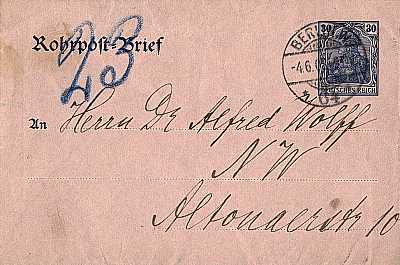 Rohrpost-Brief
23
30 30
BERLIN
-4.6.
64
DEUTSCHES REICH
An Herrn Dr Alfred Wolff
NW
Altonaerstr 10